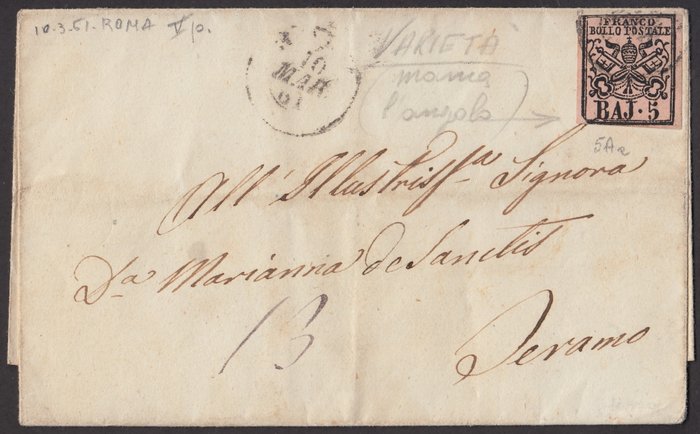 10.3.61. ROMA V p.
10
MAR
61
VARIETÀ
manca
l'angolo
FRANCO
BOLLO POSTALE
BAJ · 5
5Aa
All' Illustriss.a Signora
Da Marianna de Sanctis
13
Teramo